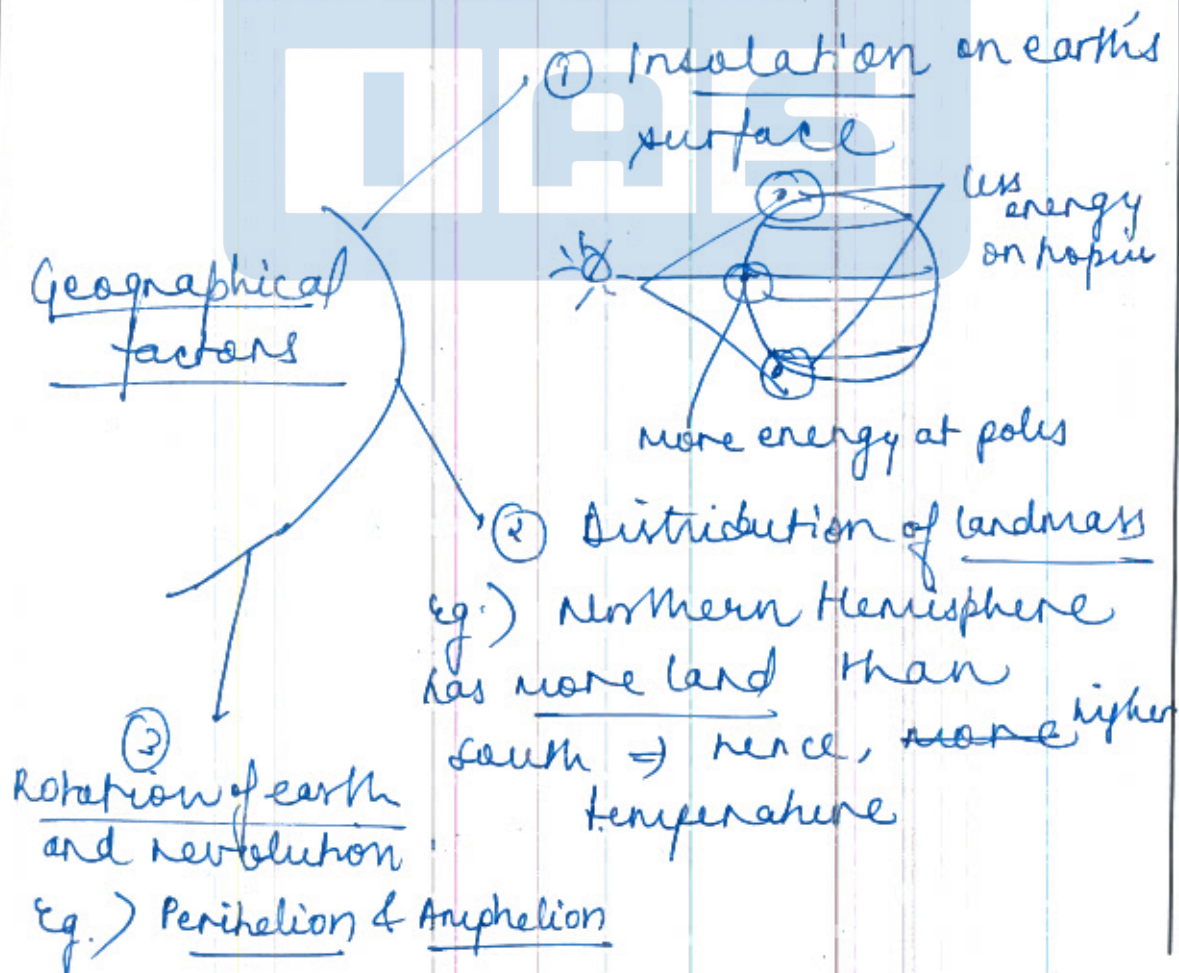 IAS
① Insolation on earth's
surface
less
energy
on
Geographical
factors
more energy at poles
② Distribution of landmass
Eg.) Northern Hemisphere
has more land than
south ⇒ hence, more higher
temperature
③
Rotation of earth
and revolution
Eg.) Perihelion & Amphelion